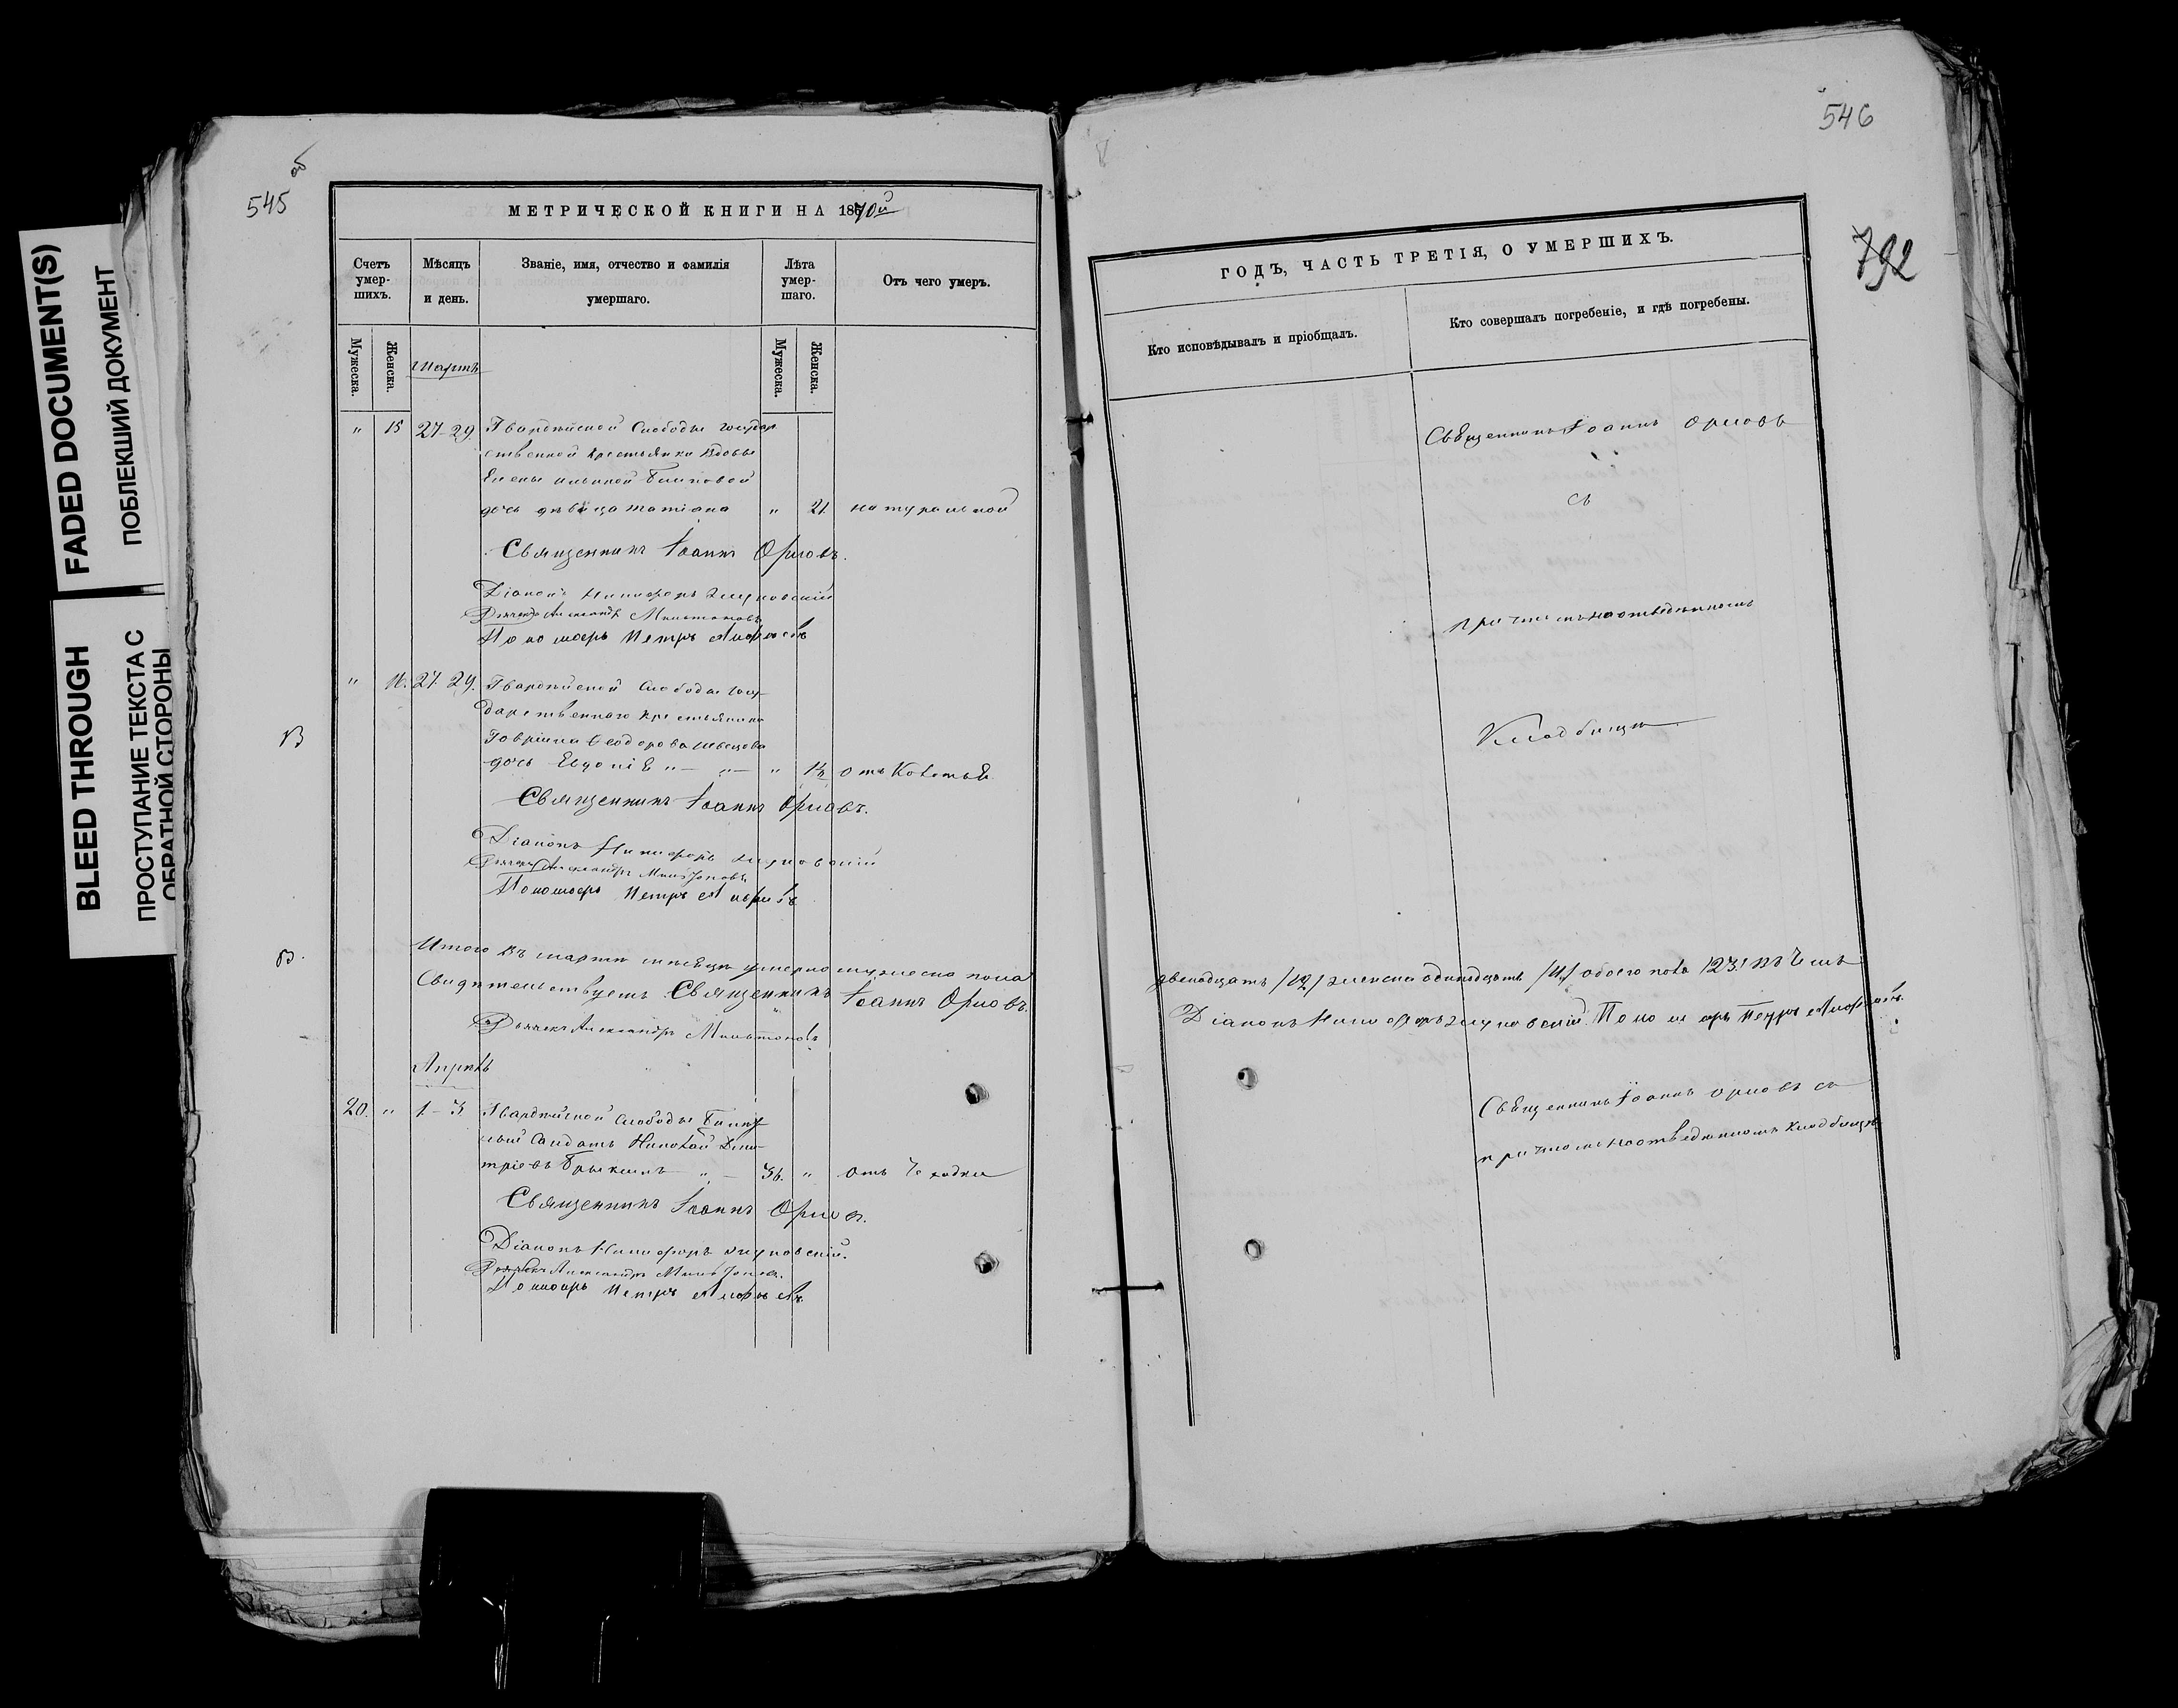 FADED DOCUMENT(S)
ПОБЛЕКШИЙ ДОКУМЕНТ
BLEED THROUGH
ПРОСТУПАНИЕ ТЕКСТА С
ОБРАТНОЙ СТОРОНЫ
545 об
МЕТРИЧЕСКОЙ КНИГИ НА 1870й
Счетъ умер-шихъ.
Мѣсяцъ и день.
Званіе, имя, отчество и фамилія умершаго.
Лѣта умер-шаго.
Отъ чего умеръ.
Мужеска.
Женска.
Мартъ
Мужеска.
Женска.
" 15 27-29. Гвардейской Слободы государ
ственной крестьянки вдовы
Елены Ильиной
дочь дѣвица Татіана " 21. натуральной
Священникъ Іоаннъ Орловъ.
Діаконъ Никифоръ
Дьячекъ Александръ Мильтоновъ
Пономарь Петръ
" 16. 27-29. Гвардейской Слободы госу
дарственнаго крестьянина
Гавріила Ѳеодорова Швецова
дочь Евдокія " — " — " 1½ отъ
Священникъ Іоаннъ Орловъ.
Діаконъ Никифоръ
Дьячекъ Александръ Мильтоновъ
Пономарь Петръ
Итого въ мартѣ мѣсяцѣ умерло мужеска пола
Свидѣтельствуетъ Священникъ Іоаннъ Орловъ.
Дьячекъ Александръ Мильтоновъ
Апрѣль
20. " 1-3 Гвардейской Слободы
Солдатъ Николай Дми
тріевъ " — 36. " отъ Чахотки
Священникъ Іоаннъ Орловъ.
Діаконъ Никифоръ
Дьячекъ Александръ Мильтоновъ.
Пономарь Петръ
546
792
ГОДЪ, ЧАСТЬ ТРЕТІЯ, О УМЕРШИХЪ.
Кто исповѣдывалъ и пріобщалъ.
Кто совершалъ погребеніе, и гдѣ погребены.
Священникъ Іоаннъ Орловъ
съ
причтомъ на отведенномъ
Кладбищѣ
двенадцать /12/ женска одинадцать /11/ обоего пола /23/ въ чемъ
Діаконъ Никифоръ Пономарь Петръ
Священникъ Іоаннъ Орловъ съ
причтомъ на отведенномъ кладбищѣ